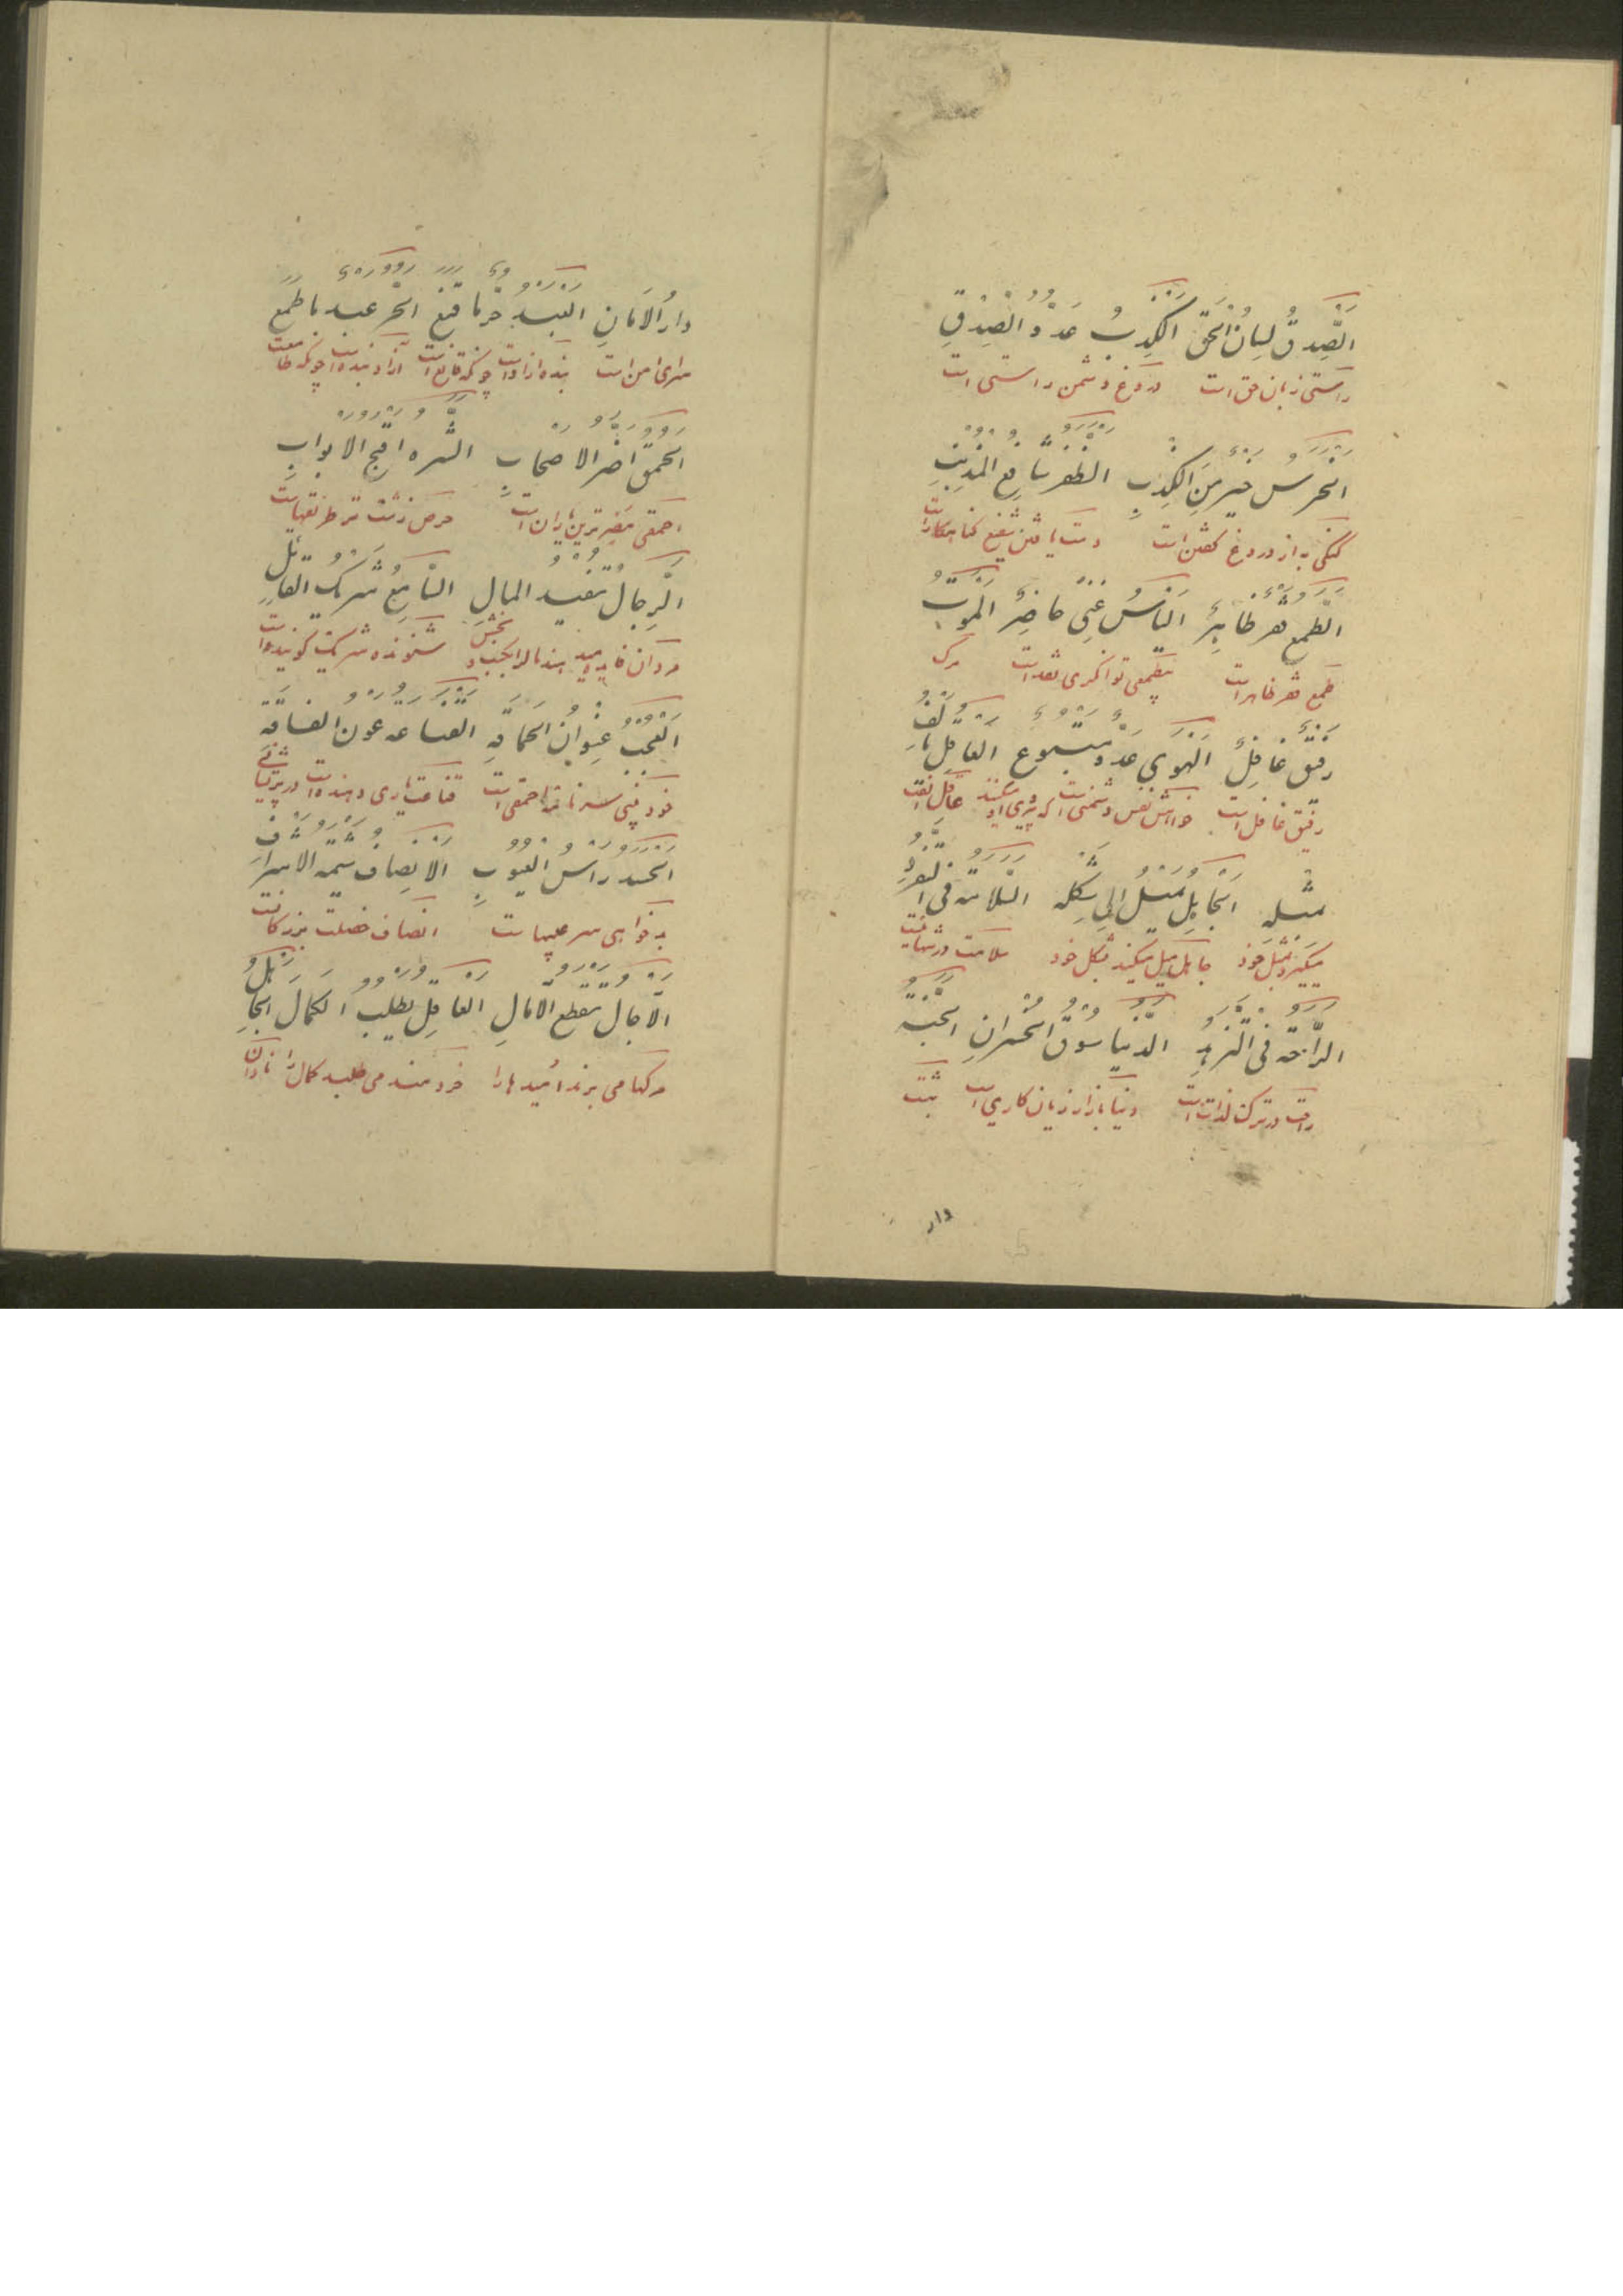 اَلصِّدقُ لِسانُ الحَقِّ اَلکِذبُ عَدُوُّ الصِّدقِ
راستی زبان حق است دروغ دشمن راستی است
اَلخَرَسُ خَیرٌ مِنَ الکِذبِ الظَّفَرُ شافِعُ المُذنِبِ
گنگی به از دروغ گفتن است دست یافتن شفیع گناهکار است
اَلطَّمَعُ فَقرٌ ظاهِرٌ اَلیَأسُ غِنیً حاضِرٌ اَلمَوتُ
طمع فقر ظاهر است بیطمعی توانگری نقد است مرگ
رَفیقٌ غافِلٌ اَلهَوی عَدُوٌّ مَتبوعٌ العاقِلُ یَألَفُ
رفیق غافل است خواهش نفس دشمنی است که پیروی او میکنند عاقل الفت
مِثلَهُ اَلجاهِلُ یَمیلُ اِلی شَکلِهِ السَّلامَةُ فِی التَّفَرُّدِ
میگیرد بمثل خود جاهل میل میکند بشکل خود سلامت در تنهائیست
الرّاحَةُ فِی الزُّهدِ الدُّنیا سُوقُ الخُسرانِ الجَنَّةُ
راحت در ترک لذات است دنیا بازار زیان کاری است بهشت
دار
دارُ الاَمانِ العَبدُ حُرٌّ ما قَنِعَ الحُرُّ عَبدٌ ما طَمِعَ
سرای امن است بنده ازاد است چونکه قانع است ازاد بنده است چونکه طامعست
الحُمقُ اَضَرُّ الاَصحابِ الشَّرَهُ اقبح الابوابِ
احمقی مضرترین یاران است حرص زشت تر
الرِّجالُ تُفیدُ المالَ السّامِعُ شَریکُ القائِلِ
مردان فایده میدهند مال را شنونده شریک گوینده است
اَلعُجبُ عُنوانُ الحَماقَةِ القَناعَه عَونُ الفاقَةِ
خود بینی سرنامه احمقی است قناعت یاری دهنده است در پریشانی
الحَسَدُ رَأسُ العُیوبِ الاِنصافُ شیمَةُ الاَشرافِ
بدخواهی سر عیبهاست انصاف خصلت بزرگانست
الآجالُ تَقطَعُ الآمالَ العاقِلُ یَطلُبُ الکَمالَ الجاهِلُ
مرگها می برند امیدها را خردمند می طلبد کمال را نادان